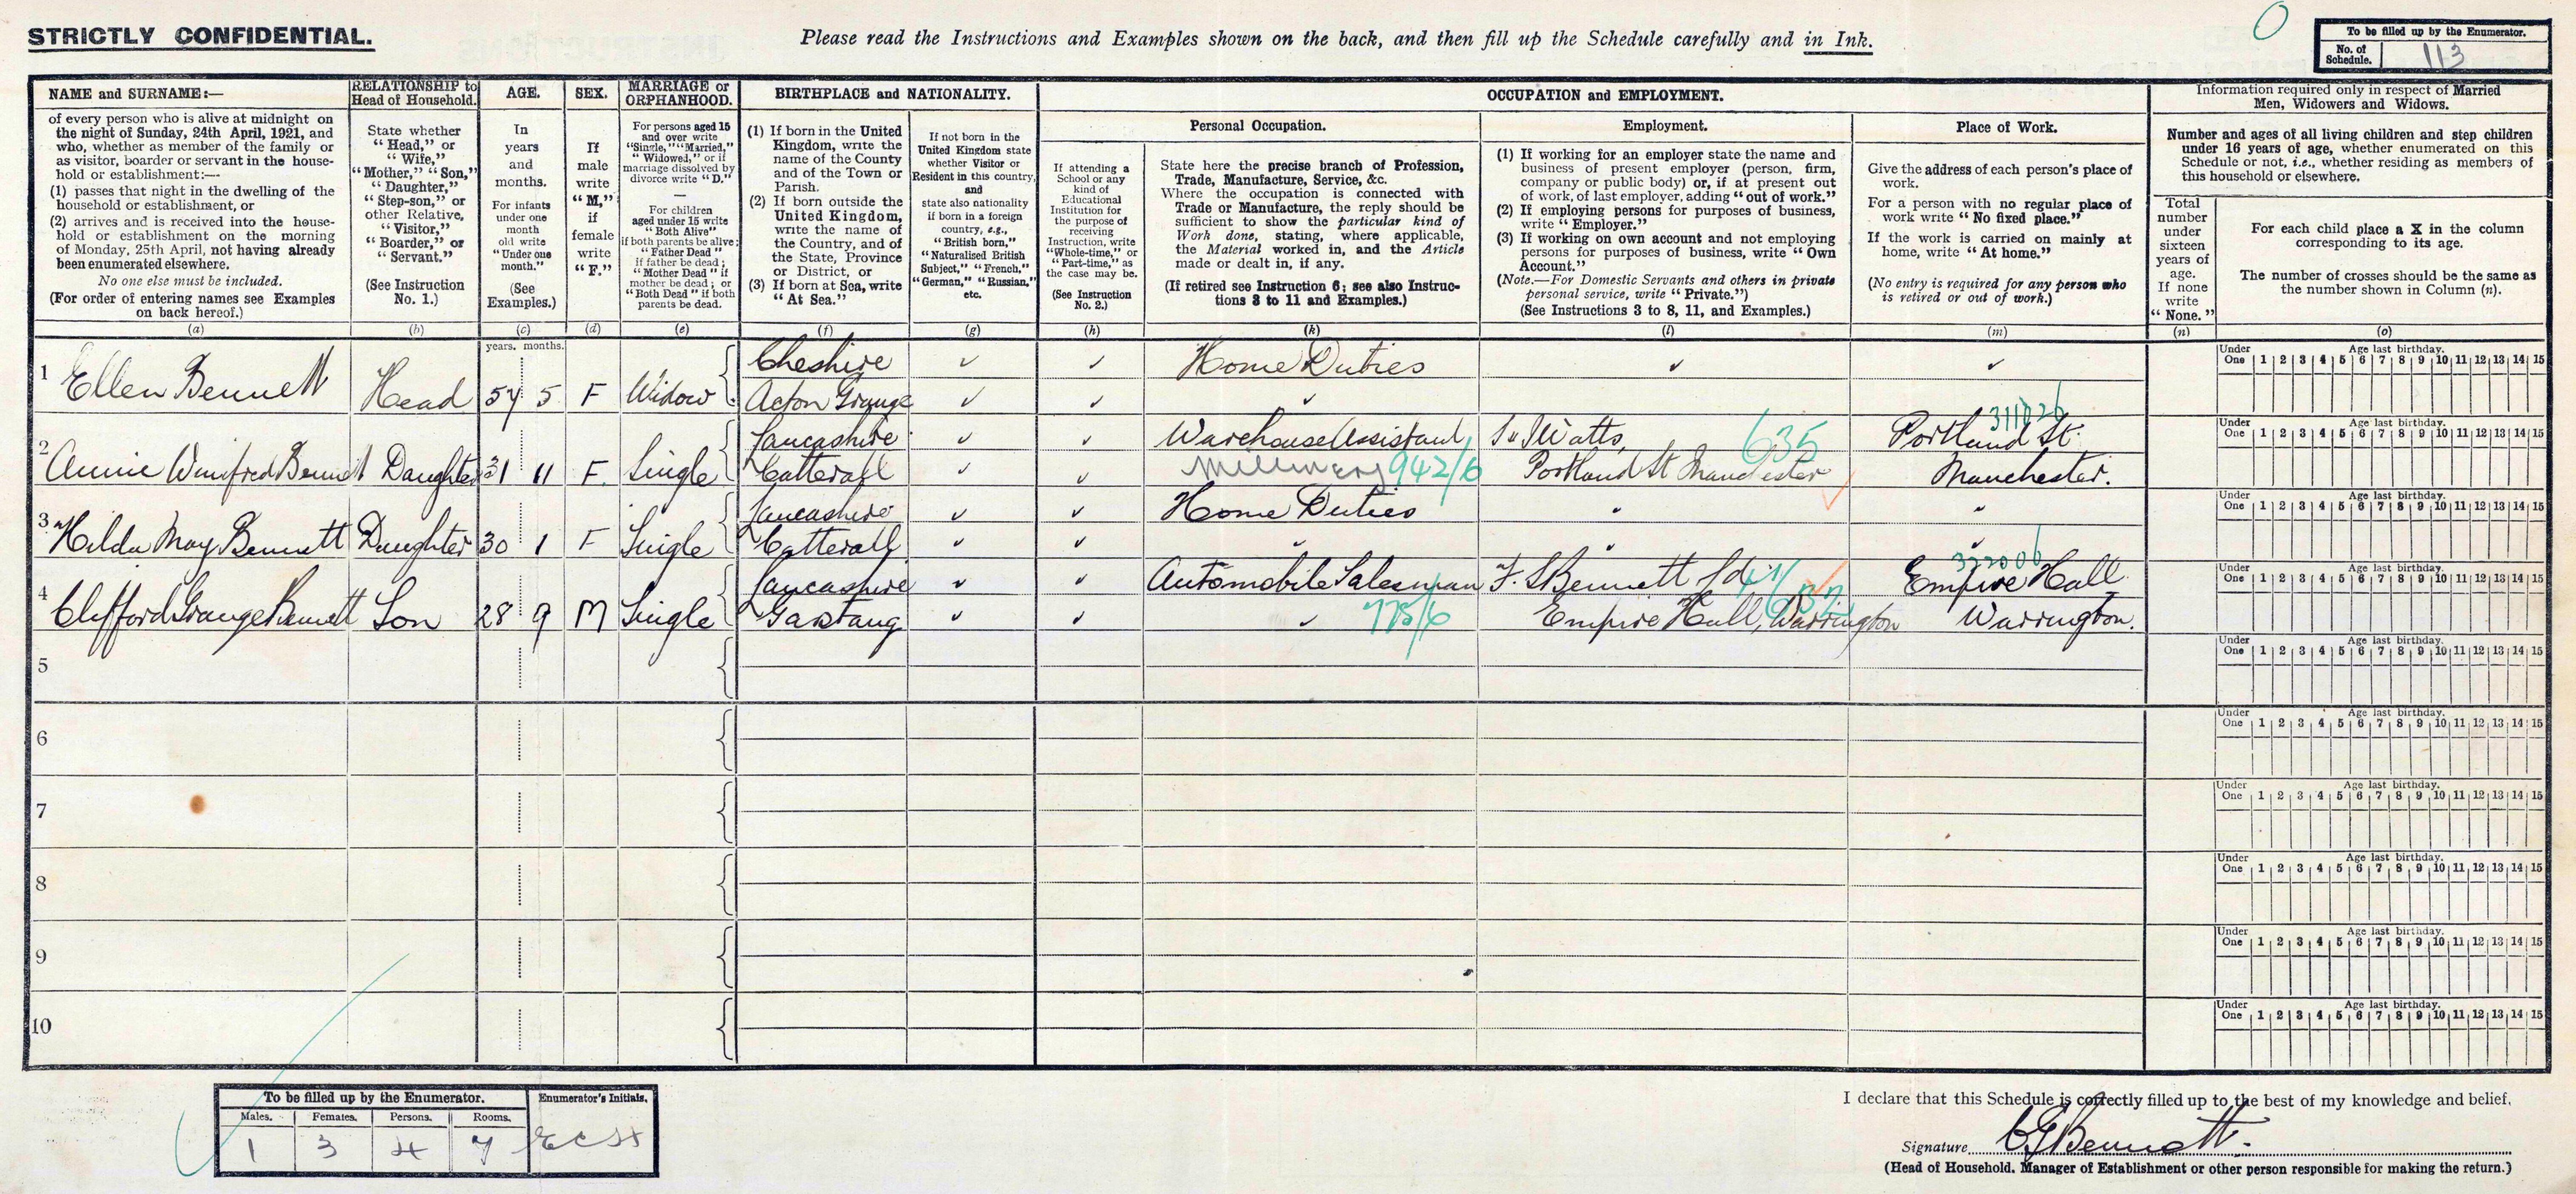 STRICTLY CONFIDENTIAL.
Please read the Instructions and Examples shown on the back, and then fill up the Schedule carefully and in Ink.
To be filled up by the Enumerator.
No. of Schedule. 113
NAME and SURNAME:—
of every person who is alive at midnight on
the night of Sunday, 24th April, 1921, and
who, whether as member of the family or
as visitor, boarder or servant in the house-
hold or establishment:—
(1) passes that night in the dwelling of the
household or establishment, or
(2) arrives and is received into the house-
hold or establishment on the morning
of Monday, 25th April, not having already
been enumerated elsewhere.
No one else must be included.
(For order of entering names see Examples
on back hereof.)
(a)
RELATIONSHIP to
Head of Household.
State whether
"Head," or
"Wife,"
"Mother," "Son,"
"Daughter,"
"Step-son," or
other Relative,
"Visitor,"
"Boarder," or
"Servant."
(See Instruction
No. 1.)
(b)
AGE.
In
years
and
months.
For infants
under one
month
old write
"Under one
month."
(See
Examples.)
(c)
SEX.
If
male
write
"M,"
if
female
write
"F."
(d)
MARRIAGE or
ORPHANHOOD.
For persons aged 15
and over write
"Single," "Married,"
"Widowed," or if
marriage dissolved by
divorce write "D."
—
For children
aged under 15 write
"Both Alive"
if both parents be alive;
"Father Dead"
if father be dead;
"Mother Dead" if
mother be dead; or
"Both Dead" if both
parents be dead.
(e)
BIRTHPLACE and NATIONALITY.
(1) If born in the United
Kingdom, write the
name of the County
and of the Town or
Parish.
(2) If born outside the
United Kingdom,
write the name of
the Country, and of
the State, Province
or District, or
(3) If born at Sea, write
"At Sea."
(f)
If not born in the
United Kingdom state
whether Visitor or
Resident in this country,
and
state also nationality
if born in a foreign
country, e.g.,
"British born,"
"Naturalised British
Subject," "French,"
"German," "Russian,"
etc.
(g)
OCCUPATION and EMPLOYMENT.
If attending a
School or any
kind of
Educational
Institution for
the purpose of
receiving
Instruction, write
"Whole-time," or
"Part-time," as
the case may be.
(See Instruction
No. 2.)
(h)
Personal Occupation.
State here the precise branch of Profession,
Trade, Manufacture, Service, &c.
Where the occupation is connected with
Trade or Manufacture, the reply should be
sufficient to show the particular kind of
Work done, stating, where applicable,
the Material worked in, and the Article
made or dealt in, if any.
(If retired see Instruction 6; see also Instruc-
tions 3 to 11 and Examples.)
(k)
Employment.
(1) If working for an employer state the name and
business of present employer (person, firm,
company or public body) or, if at present out
of work, of last employer, adding "out of work."
(2) If employing persons for purposes of business,
write "Employer."
(3) If working on own account and not employing
persons for purposes of business, write "Own
Account."
(Note.—For Domestic Servants and others in private
personal service, write "Private.")
(See Instructions 3 to 8, 11, and Examples.)
(l)
Place of Work.
Give the address of each person's place of
work.
For a person with no regular place of
work write "No fixed place."
If the work is carried on mainly at
home, write "At home."
(No entry is required for any person who
is retired or out of work.)
(m)
Information required only in respect of Married
Men, Widowers and Widows.
Number and ages of all living children and step children
under 16 years of age, whether enumerated on this
Schedule or not, i.e., whether residing as members of
this household or elsewhere.
Total
number
under
sixteen
years of
age.
If none
write
"None."
(n)
For each child place a X in the column
corresponding to its age.
The number of crosses should be the same as
the number shown in Column (n).
(o)
years. months.
Under One Age last birthday. 1 2 3 4 5 6 7 8 9 10 11 12 13 14 15
1 Ellen Bennett Head 57 5 F Widow Cheshire Home Duties
Acton Grange
311026
Under One Age last birthday. 1 2 3 4 5 6 7 8 9 10 11 12 13 14 15
2 Annie Winifred Bennett Daughter 31 11 F. Single Lancashire Warehouse Assistant S & J Watts, 635 Portland St.
Catterall Millinery 942/6 Portland St Manchester Manchester.
Under One Age last birthday. 1 2 3 4 5 6 7 8 9 10 11 12 13 14 15
3 Hilda May Bennett Daughter 30 1 F Single Lancashire Home Duties
Catterall
322006
Under One Age last birthday. 1 2 3 4 5 6 7 8 9 10 11 12 13 14 15
4 Clifford Grange Bennett Son 28 9 M Single Lancashire Automobile Salesman F. S Bennett Ld Empire Hall
Garstang 775/6 Empire Hall, Warrington Warrington.
5 Under One Age last birthday. 1 2 3 4 5 6 7 8 9 10 11 12 13 14 15
6 Under One Age last birthday. 1 2 3 4 5 6 7 8 9 10 11 12 13 14 15
7 Under One Age last birthday. 1 2 3 4 5 6 7 8 9 10 11 12 13 14 15
8 Under One Age last birthday. 1 2 3 4 5 6 7 8 9 10 11 12 13 14 15
9 Under One Age last birthday. 1 2 3 4 5 6 7 8 9 10 11 12 13 14 15
10 Under One Age last birthday. 1 2 3 4 5 6 7 8 9 10 11 12 13 14 15
To be filled up by the Enumerator. Enumerator's Initials.
Males. Females. Persons. Rooms.
1 3 4 7 ECH
I declare that this Schedule is correctly filled up to the best of my knowledge and belief.
Signature C G Bennett.
(Head of Household, Manager of Establishment or other person responsible for making the return.)